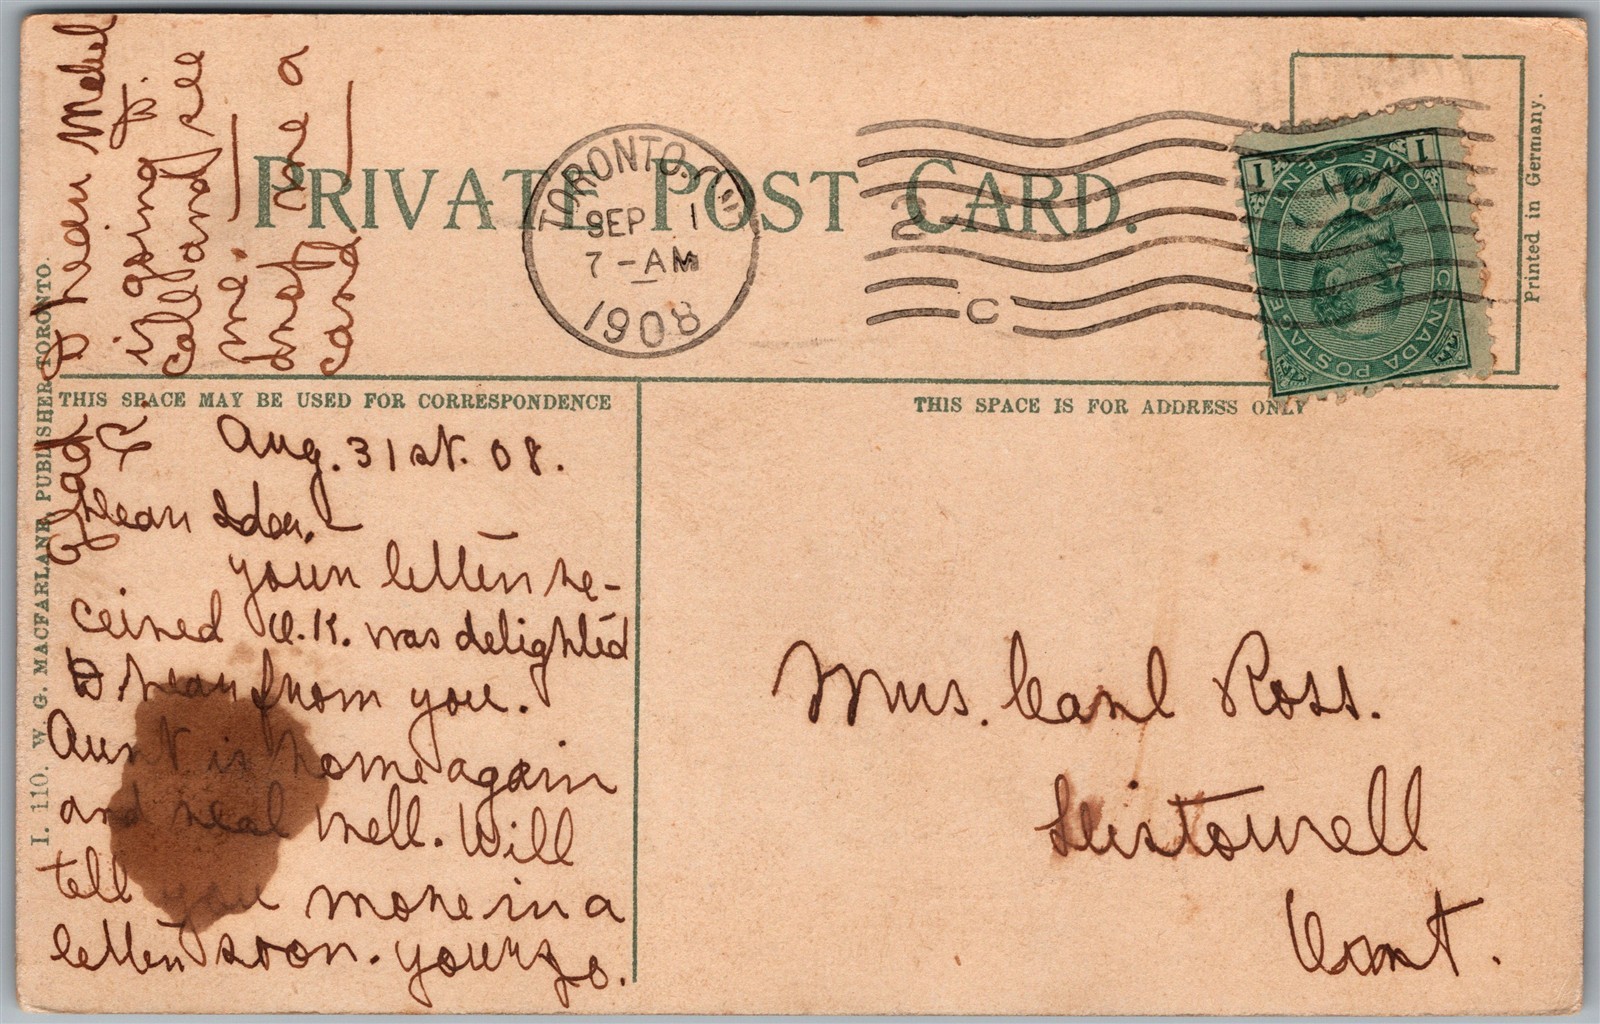 PRIVATE POST CARD.
TORONTO.
SEP 1
7-AM
1908
C
CANADA POSTAGE
ONE CENT
1 1
Printed in Germany.
THIS SPACE MAY BE USED FOR CORRESPONDENCE
THIS SPACE IS FOR ADDRESS ONLY
I. 110. W. G. MACFARLANE, PUBLISHER TORONTO.
Aug. 31st. 08.
Dear Ida. –
your letter re-
ceived O.K. was delighted
to hear from you.
Aunt is home again
and real well. Will
tell you more in a
letter soon. yours
I hear Mabel
is going
call and see
me.
a
card
Mrs. Carl Ross.
Listowell
Ont.